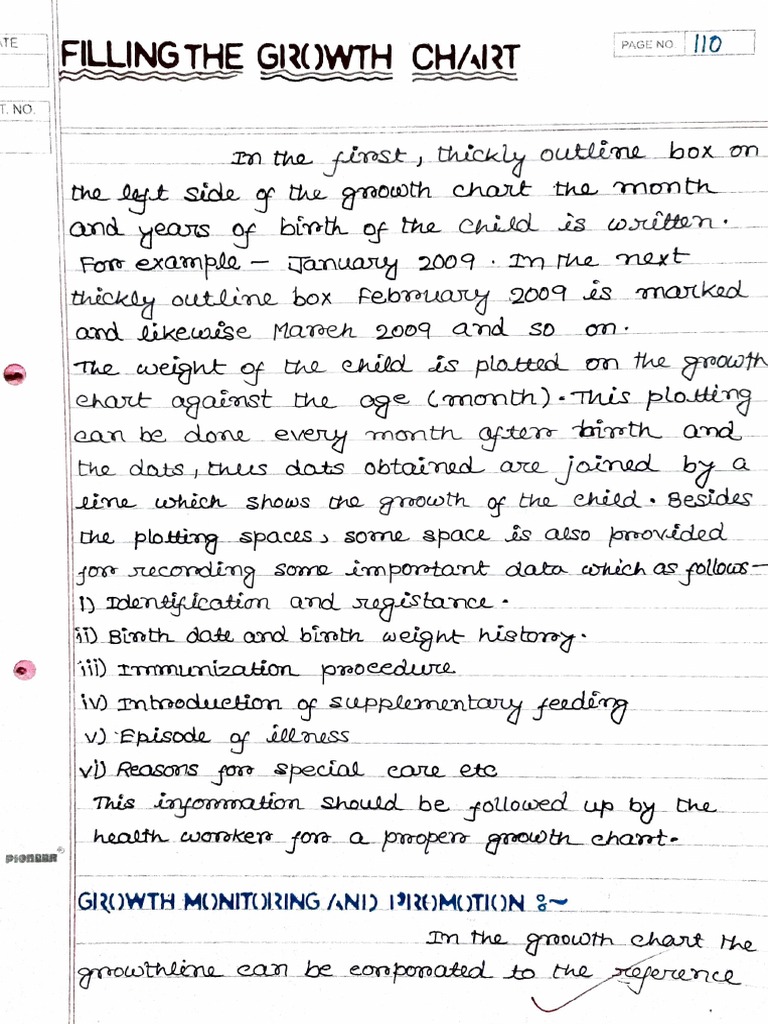 ATE
FILLING THE GROWTH CHART
PAGE NO. 110
T. NO.
In the first, thickly outline box on
the left side of the growth chart the month
and years of birth of the child is written.
For example - January 2009. In the next
thickly outline box February 2009 is marked
and likewise March 2009 and so on.
The weight of the child is plotted on the growth
chart against the age (month). This plotting
can be done every month after birth and
the dots, thus dots obtained are joined by a
line which shows the growth of the child. Besides
the plotting spaces, some space is also provided
for recording some important data which as follows-
i) Identification and registance.
ii) Birth date and birth weight history.
iii) Immunization procedure
iv) Introduction of supplementary feeding
v) Episode of illness
vi) Reasons for special care etc
This information should be followed up by the
health worker for a proper growth chart.
PIONEER
GROWTH MONITORING AND PROMOTION :~
In the growth chart the
growthline can be comporated to the reference